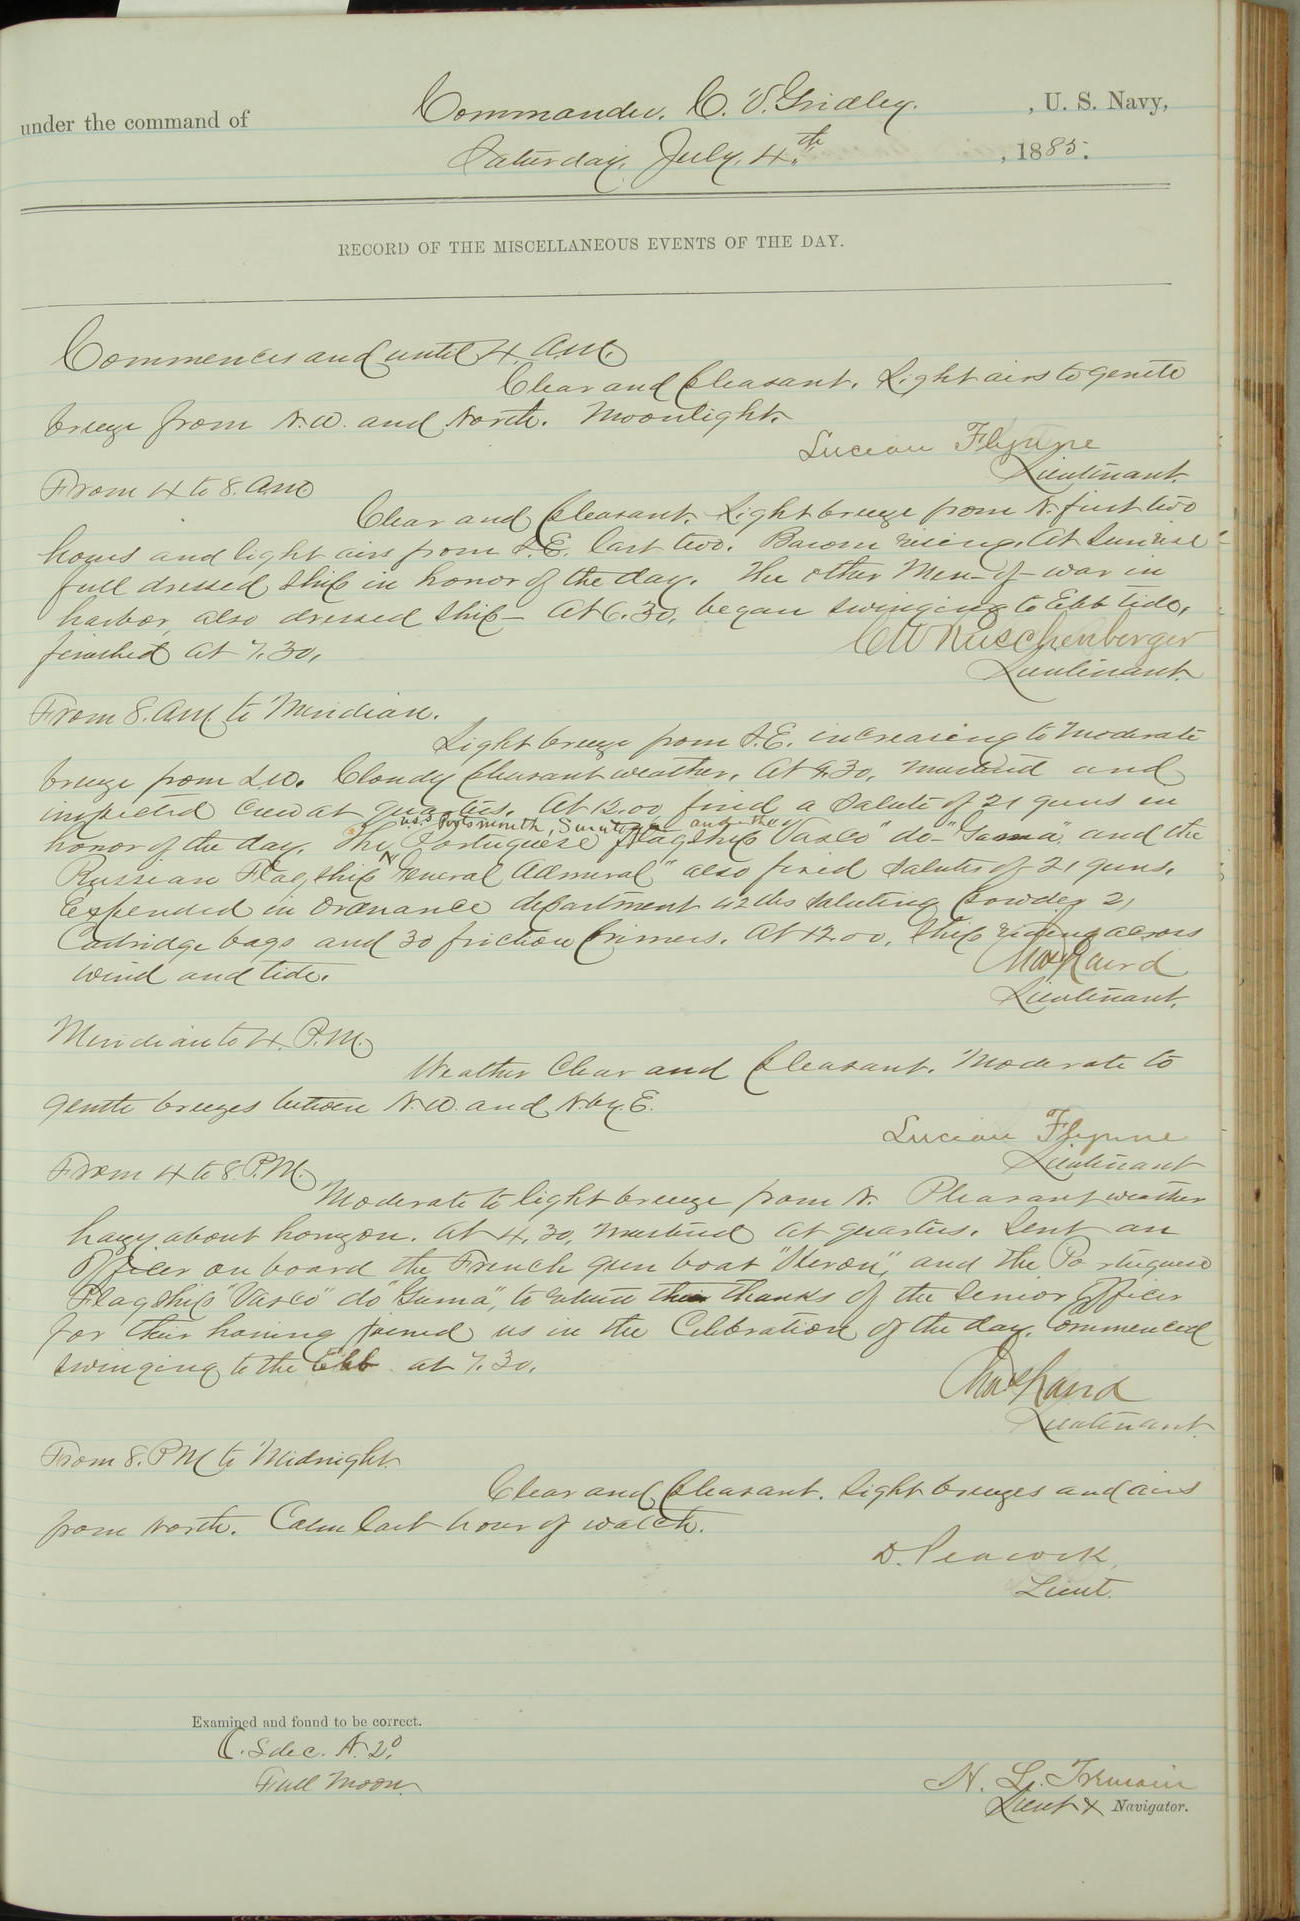 under the command of Commander. C. V. Gridley. , U. S. Navy,
Saturday, July, 4.th , 1885.
RECORD OF THE MISCELLANEOUS EVENTS OF THE DAY.
Commences and until 4. A.M.
Clear and pleasant. Light airs to gentle
breeze from N.W. and North. Moonlight.
Lucien Flynne
Lieutenant.
From 4 to 8. A.M.
Clear and pleasant. Light breeze from N. first two
hours and light airs from S.E. last two. Barom rising. At Sunrise
full dressed ship in honor of the day. The other Men-of-war in
harbor, also dressed ship— At 6.30, began swinging to Ebb tide,
finished at 7.30,
C W Ruschenberger
Lieutenant.
From 8. A.M. to Meridian.
Light breeze from S.E. increasing to moderate
breeze from S.W. Cloudy pleasant weather. At 9.30, mustered and
inspected crew at quarters. At 12.00 fired a salute of 21 guns in
U.S.S. Portsmouth, and the
honor of the day. The Portuguese flagship "Vasco" do "Gama" and the
Russian Flagship "General Admiral" also fired salutes of 21 guns.
Expended in Ordnance department 42 lbs saluting powder 21
Cartridge bags and 30 friction primers. At 12.00, ship riding across
wind and tide.
Chas Laird
Lieutenant.
Meridian to 4. P.M.
Weather Clear and pleasant. Moderate to
gentle breezes between N.W. and N. by E.
Lucien Flynne
Lieutenant
From 4 to 8. P.M.
Moderate to light breeze from N. Pleasant weather
hazy about horizon. At 4.30, mustered at quarters. Sent an
Officer on board the French gun boat and the Portuguese
Flagship "Vasco" do "Gama", to return the thanks of the Senior Officer
for their having joined us in the Celebration of the day. Commenced
swinging to the Ebb at 7.30.
Chas Laird
Lieutenant.
From 8. P.M. to Midnight.
Clear and pleasant. Light breezes and airs
from North. Calm last hour of watch.
D. Peacock,
Lieut.
Examined and found to be correct.
Full Moon.
H. L. Tremain
Lieut & Navigator.